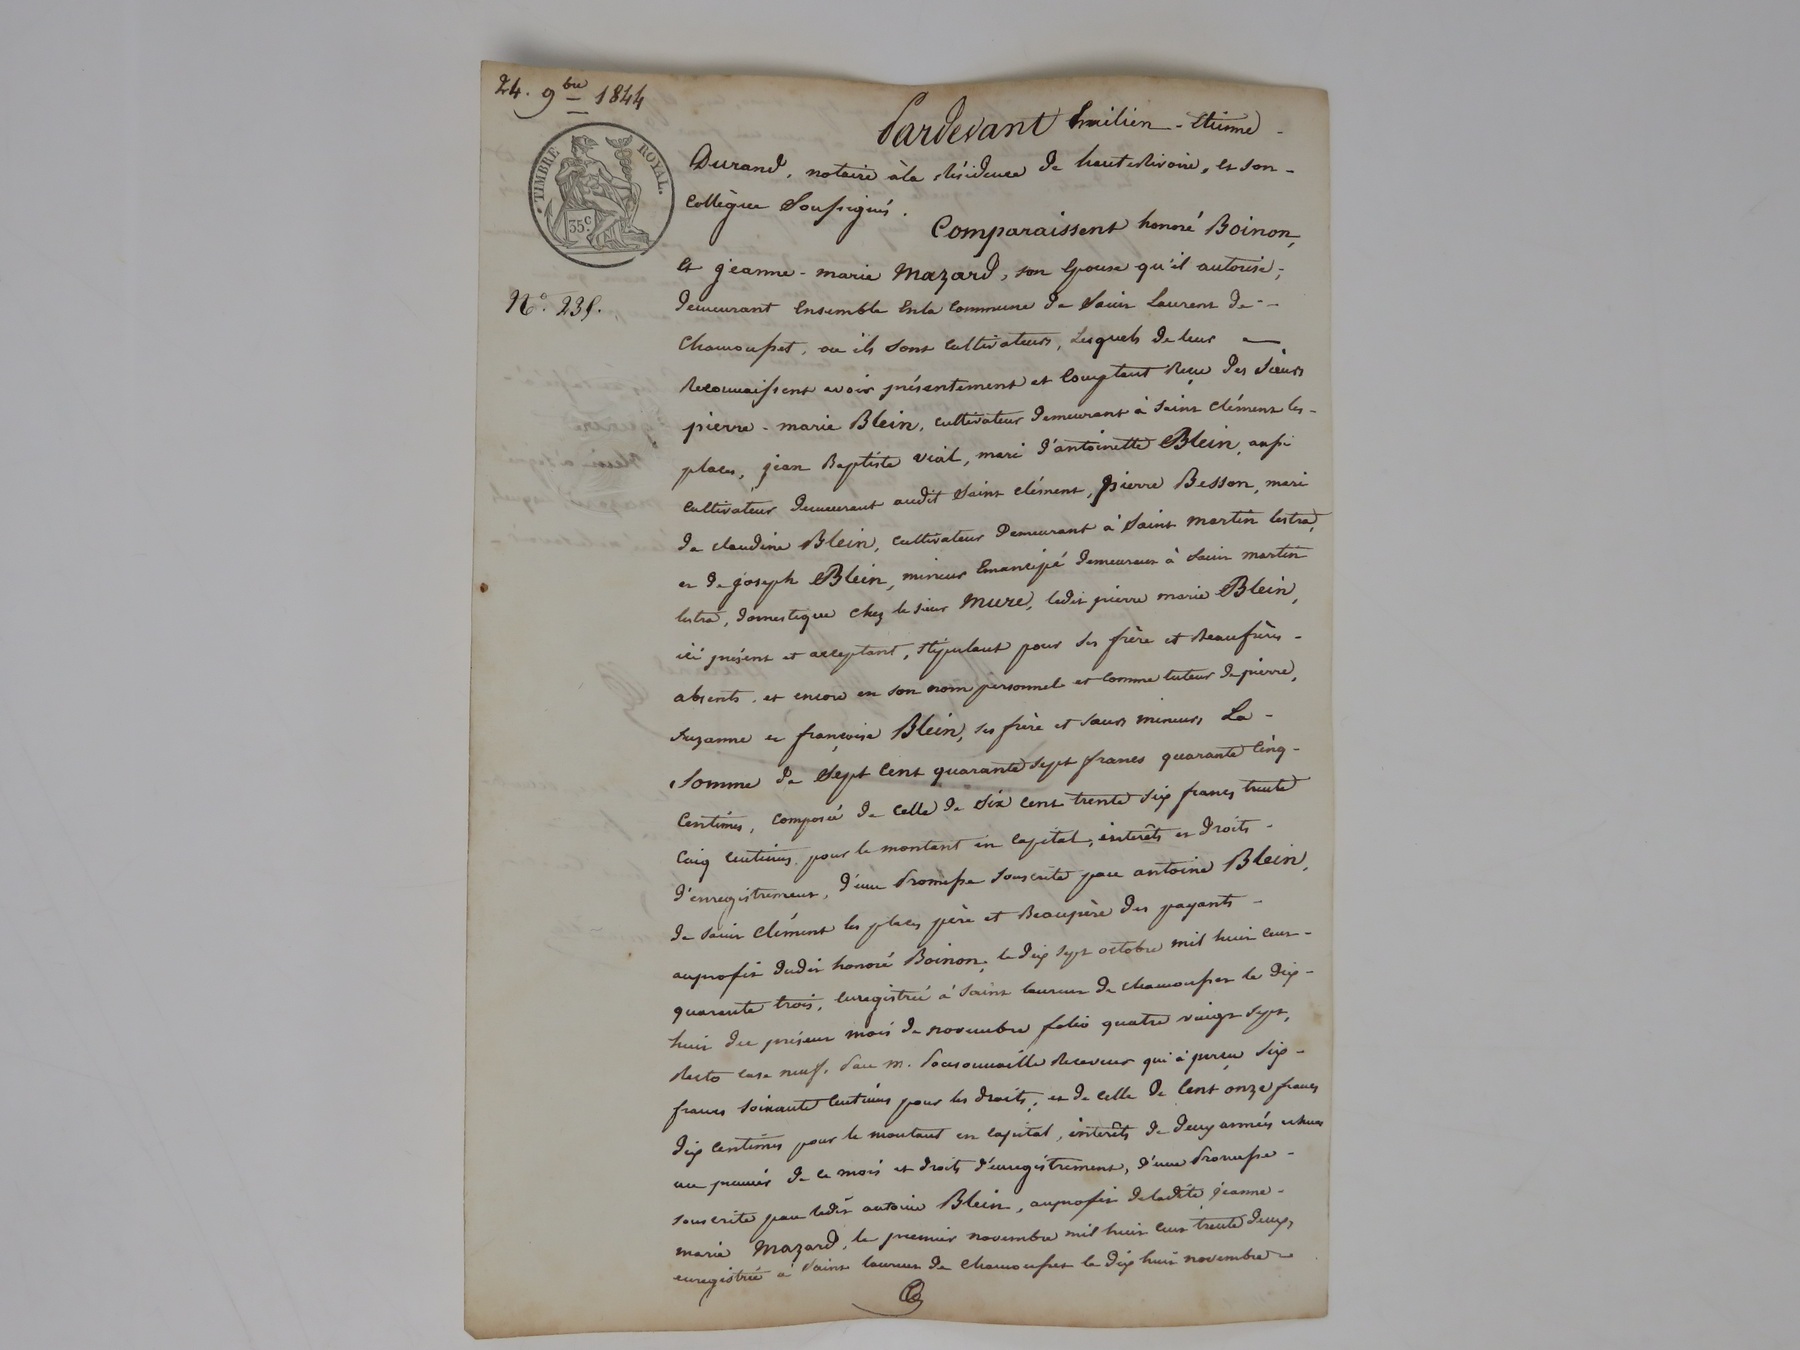 24. 9bre 1844
TIMBRE ROYAL.
35 c.
Pardevant Emilien - Etienne -
Durand, notaire à la résidence de hauterivoire, et son -
collègue soussignés.
Comparaissent honoré Boinon,
et jeanne - marie Mazard, son épouse qu'il autorise,
N°. 235.
demeurant ensemble en la commune de Saint Laurent de -
chamousset, où ils sont cultivateurs, Lesquels de leur
Reconnaissent avoir présentement et comptant Reçu des sieurs
pierre - marie Blein, cultivateur demeurant à Saint clément les -
places, jean Baptiste vial, mari d'antoinette Blein, aussi
cultivateur demeurant audit Saint clément, pierre Besson, mari
de claudine Blein, cultivateur demeurant à Saint martin lestra,
et de joseph Blein, mineur émancipé demeurant à Saint martin
lestra, domestique chez le sieur Mure, ledit pierre marie Blein,
ici présent et acceptant, stipulant pour ses frère et Beaufrères -
absents, et encore en son nom personnel et comme tuteur de pierre,
suzanne et françoise Blein, ses frère et sœurs mineurs La -
somme de sept cent quarante sept francs quarante cinq -
centimes, composée de celle de six cent trente six francs trente
cinq centimes, pour le montant en capital, intérêts et droits -
d'enregistrement, d'une Promesse souscrite par antoine Blein,
de Saint clément les places père et Beaupère des payants -
au profit dudit honoré Boinon, le dix sept octobre mil huit cent -
quarante trois, enregistrée à Saint laurent de chamousset le dix -
huit du présent mois de novembre folio quatre vingt sept,
Recto case neuf, Par m. Receveur qui a perçu six -
francs soixante centimes pour les droits, et de celle de cent onze francs
dix centimes pour le montant en capital, intérêts de deux années échues
au premier de ce mois et droits d'enregistrement, d'une Promesse -
souscrite par ledit antoine Blein, au profit de ladite jeanne -
marie Mazard, le premier novembre mil huit cent trente deux,
enregistrée à Saint laurent de chamousset le dix huit novembre